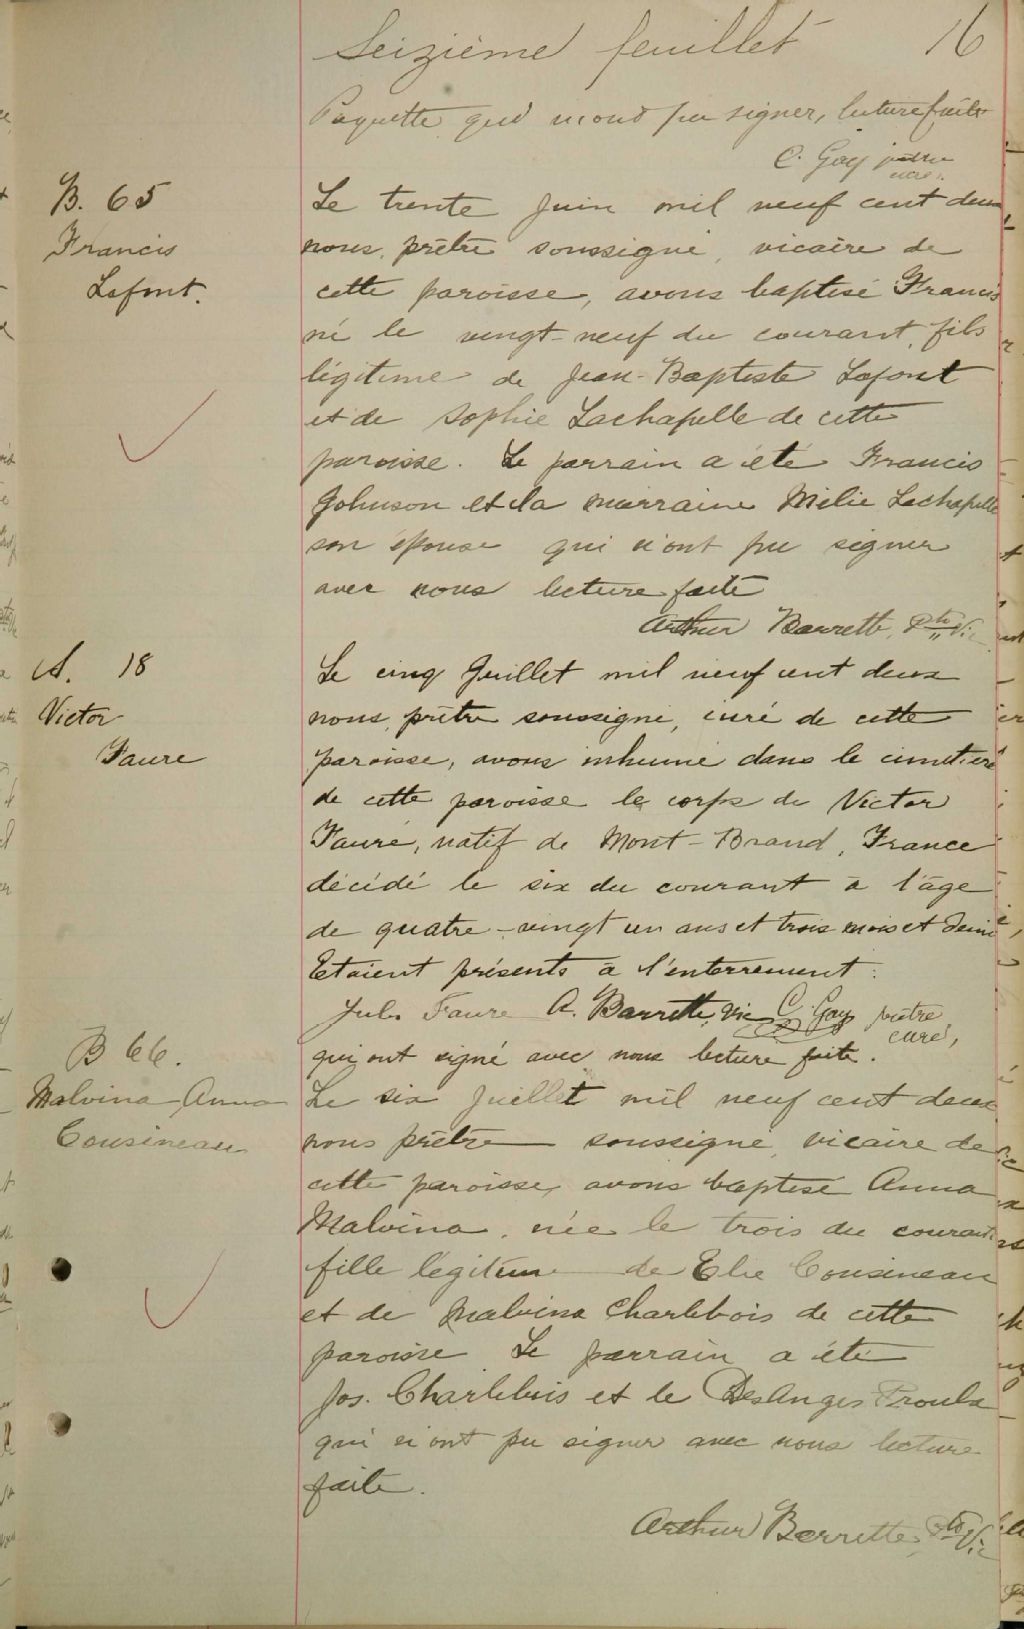 Seizième feuillet 16
Paquette qui n'ont pu signer, lecture faite
C. Gay prêtre
curé.
B. 65
Francis
Lafont.
Le trente Juin mil neuf cent deux
nous, prêtre soussigné, vicaire de
cette paroisse, avons baptisé Francis
né le vingt-neuf du courant, fils
légitime de Jean-Baptiste Lafont
et de Sophie Lachapelle de cette
paroisse. Le parrain a été Francis
Johnson et la marraine Mélie Lachapelle
son épouse qui n'ont pu signer
avec nous lecture faite
Arthur Barrette, Ptre Vic
S. 18
Victor
Faure
Le cinq Juillet mil neuf cent deux
nous, prêtre soussigné, curé de cette
paroisse, avons inhumé dans le cimetière
de cette paroisse le corps de Victor
Faure, natif de Mont-Brand, France
décédé le six du courant à l'âge
de quatre-vingt un ans et trois mois et demi
Etaient présents à l'enterrement :
Jules Faure A. Barrette, vic C. Gay prêtre
curé,
qui ont signé avec nous lecture faite.
B 66.
Malvina Anna
Cousineau
Le six Juillet mil neuf cent deux
nous prêtre soussigné, vicaire de
cette paroisse, avons baptisé Anna
Malvina, née le trois du courant
fille légitime de Elie Cousineau
et de Malvina Charlebois de cette
paroisse Le parrain a été
Jos. Charlebois et le DesAnges Proulx
qui n'ont pu signer avec nous lecture
faite.
Arthur Barrette, Ptre Vic